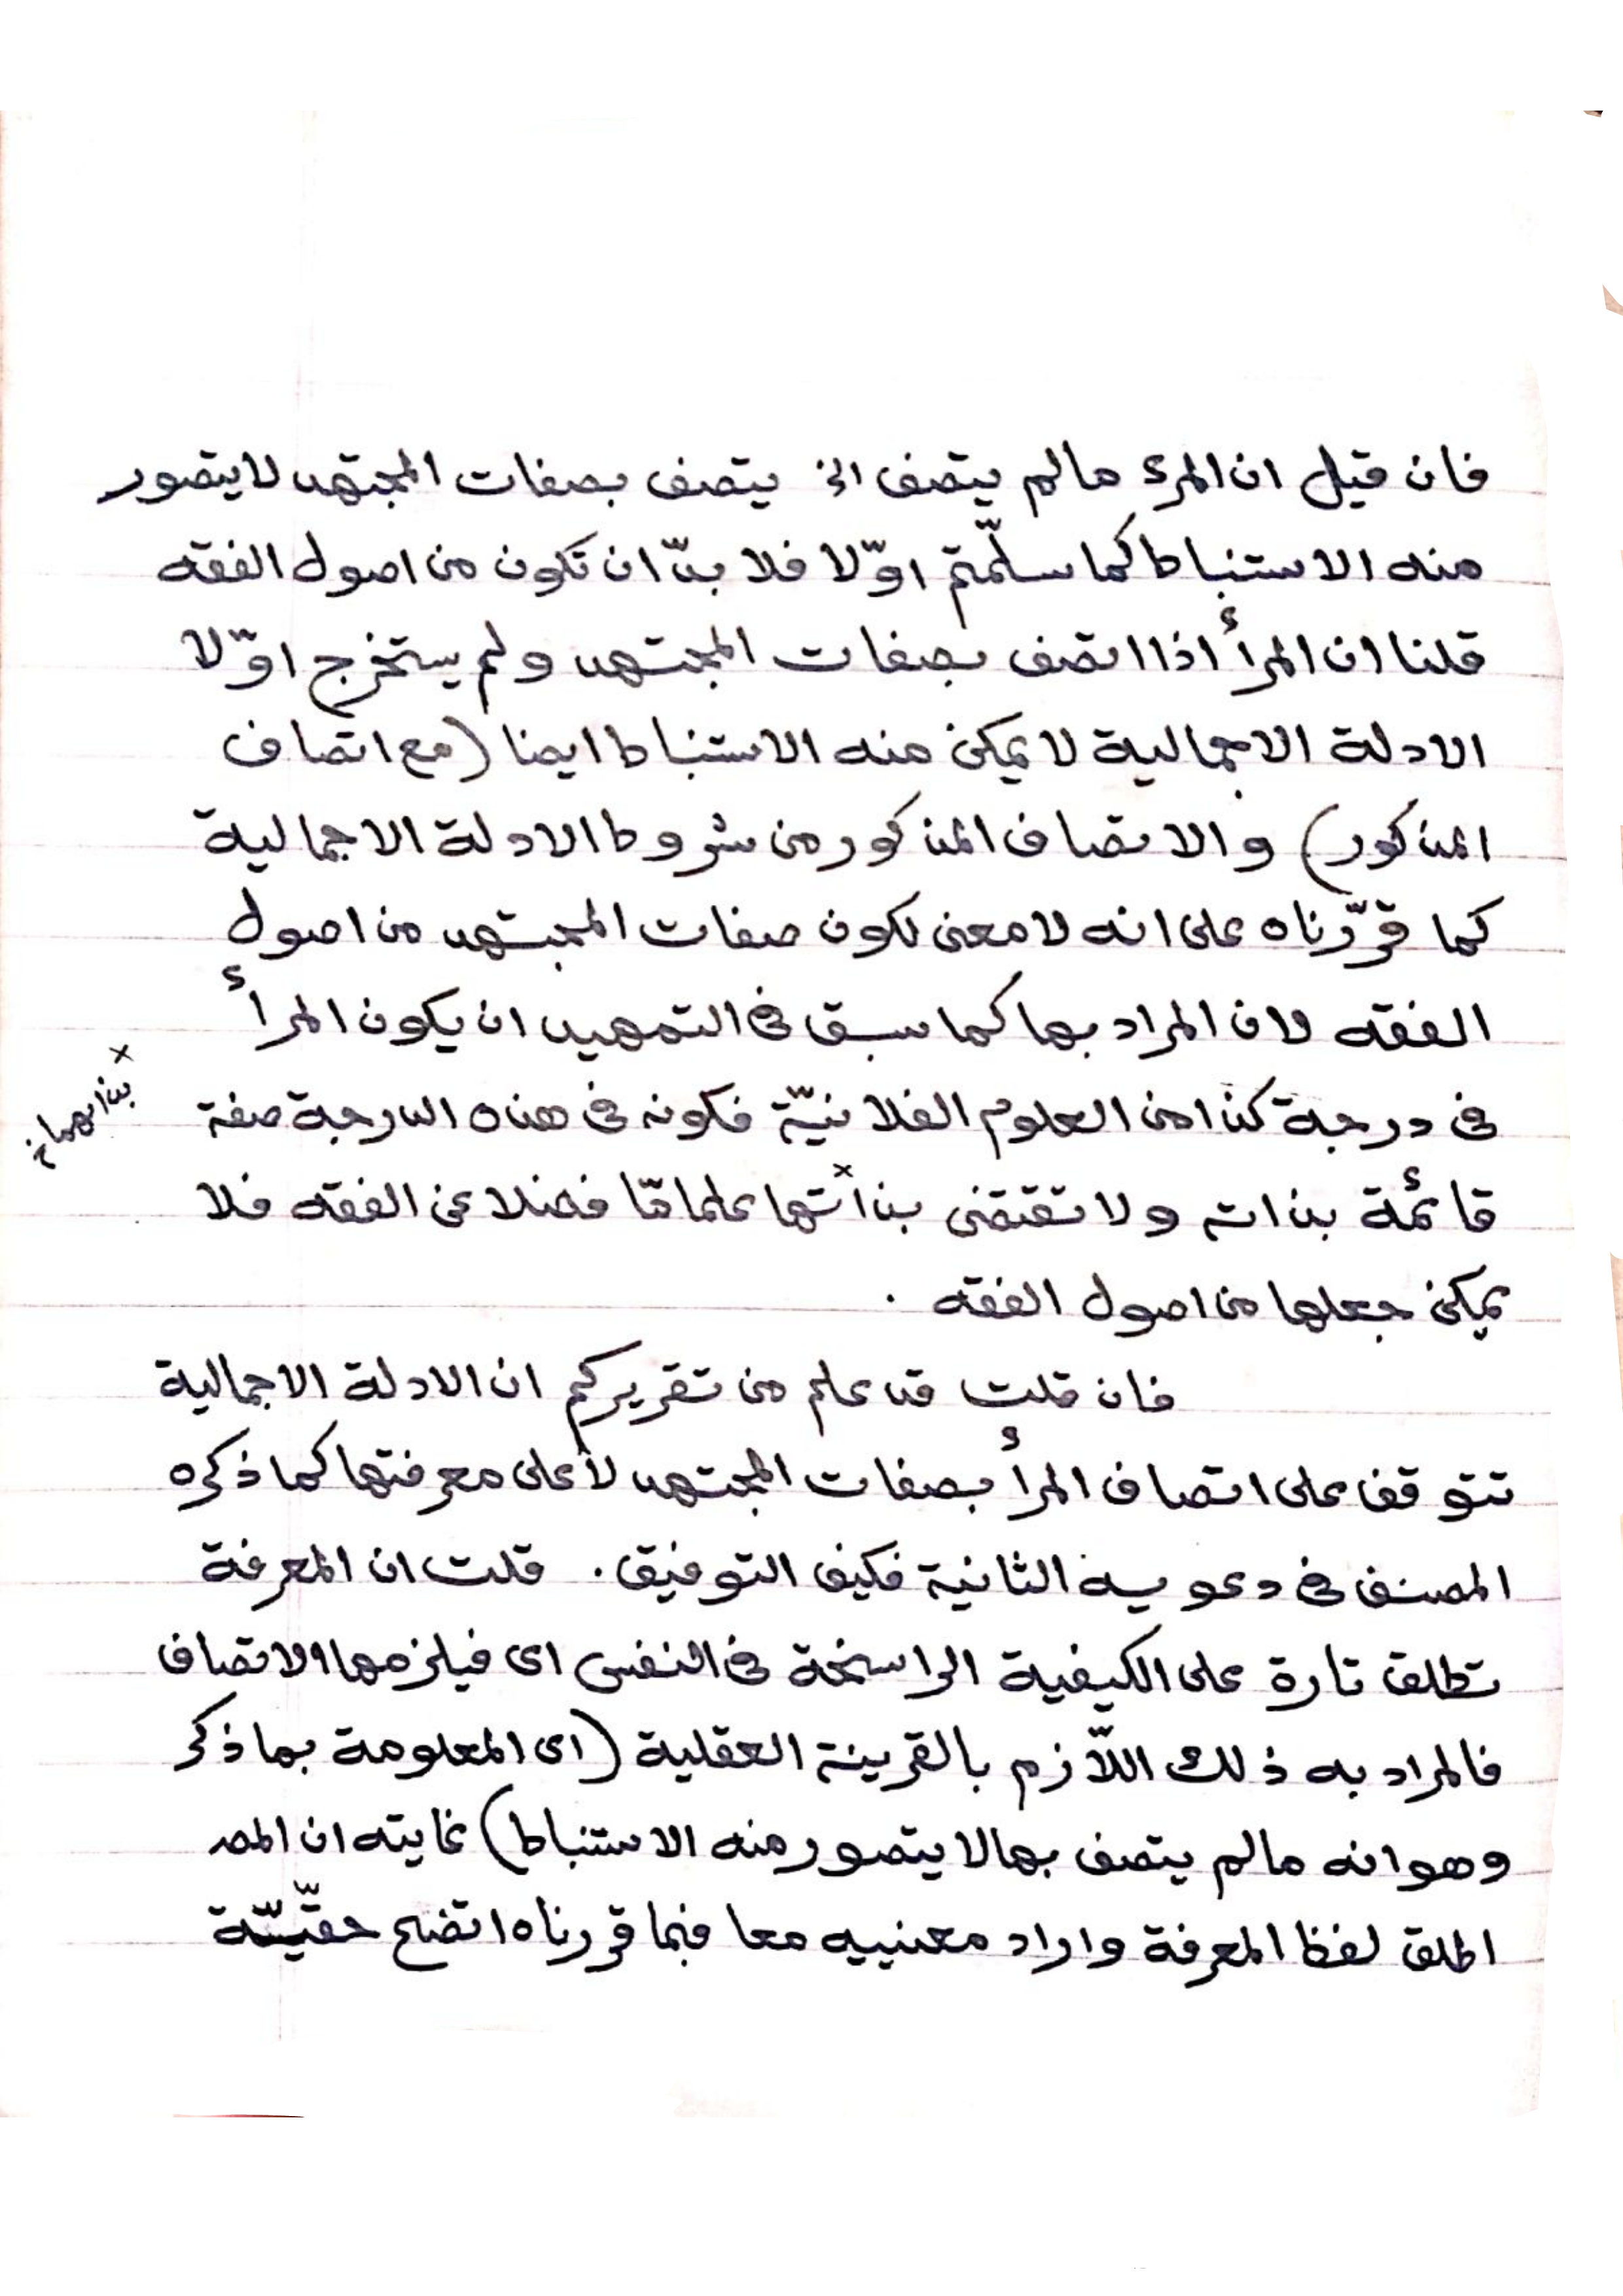 فان قيل ان المرء مالم يتصف اى يتصف بصفات المجتهد لا يتصور
منه الاستنباط كما سلّمتم اوّلا فلا بدّ ان تكون من اصول الفقه
قلنا ان المرأ اذا اتصف بصفات المجتهد ولم يستخرج اوّلا
الادلة الاجمالية لا يمكن منه الاستنباط ايضا (مع اتصاف
المذكور) والاتصاف المذكور من شروط الادلة الاجمالية
كما قرّرناه على انه لا معنى لكون صفات المجتهد من اصول
الفقه لان المراد بها كما سبق فى التمهيد ان يكون المرأ
فى درجة كذا من العلوم الفلانيّة فكونه فى هذه الدرجة صفة
قائمة بذاته ولا تقتضى بذاتها× علما مّا فضلا عن الفقه فلا
يمكن جعلها من اصول الفقه .
فان قلت قد علم من تقريركم ان الادلة الاجمالية
تتوقف على اتصاف المرأ بصفات المجتهد لا على معرفتها كما ذكره
المصنف فى دعوييه الثانية فكيف التوفيق . قلت ان المعرفة
تطلق تارة على الكيفية الراسخة فى النفس اى فيلزمها الاتصاف
فالمراد به ذلك اللّازم بالقرينة العقلية (اى المعلومة بما ذكر
وهو انه مالم يتصف بها لا يتصور منه الاستنباط) غايته ان المصـ
اطلق لفظ المعرفة واراد معنييه معا فبما قررناه اتضح حقّيّة